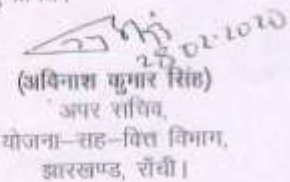 28.02.2020
(अविनाश कुमार सिंह)
अपर सचिव,
योजना–सह–वित्त विभाग,
झारखण्ड, राँची।